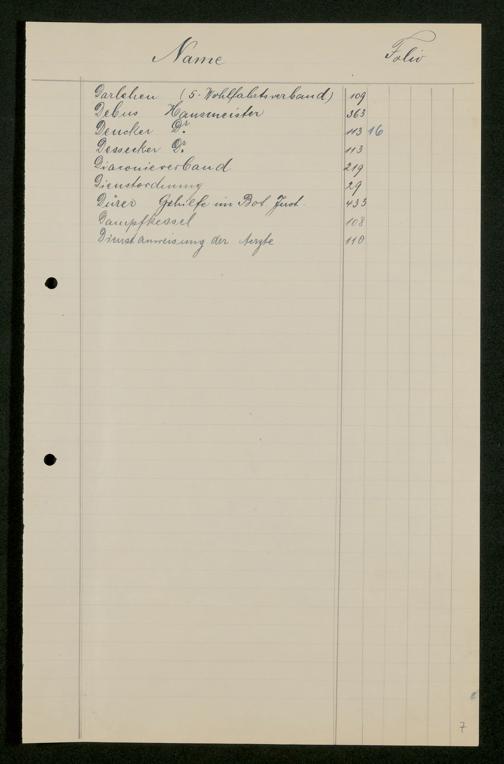 Name Folio
Darlehen (5. Wohlfahrtsverband) 109
Debus Hausmeister 363
Dencker Dr. 113 16
Dessecker Dr. 113
Diaconieverband 219
Dienstordnung 29
Dürer Gehilfe im Bot. Inst. 433
Dampfkessel 108
Dienstanweisung der Aerzte 110
7